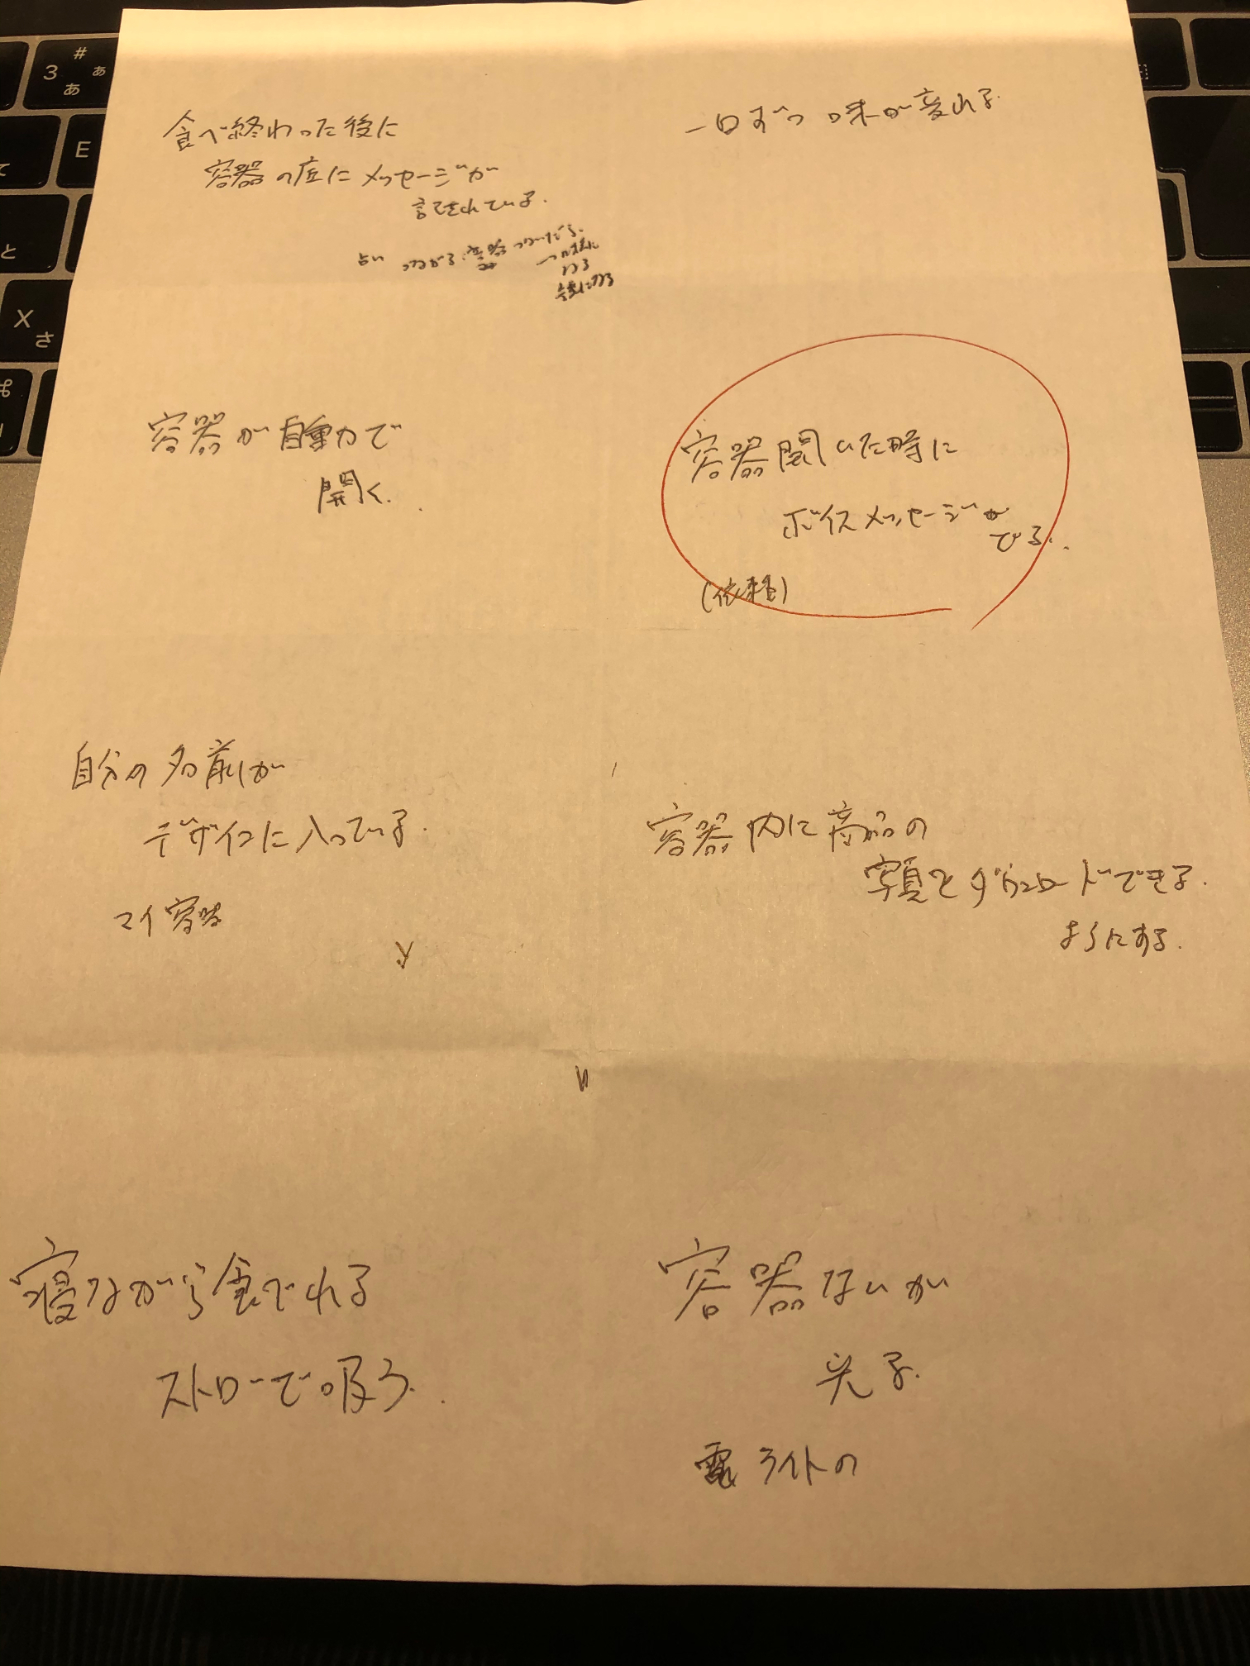 食べ終わった後に
容器の底にメッセージが
記されている.
占い つながる
一口ずつ味が変わる
容器が自動で
開く.
容器開いた時に
ボイスメッセージが
でる.
自分の名前が
デザインに入っている.
マイ容器
容器内に商品の
写真をダウンロードできる.
ようにする.
寝ながら食べれる
ストローで吸う.
容器ないが
光る.
ライトの
3
#
あ
ぁ
E
と
X
さ
⌘